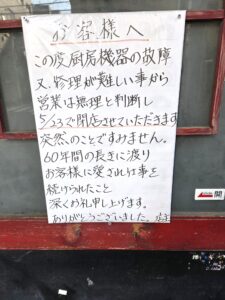 お客様へ
この度厨房機器の故障
又、修理が難しい事から
営業は無理と判断し
5/23で閉店させていただきます
突然のことですみません。
60年間の長きに渡り
お客様に愛され仕事を
続けられたこと
深くお礼申し上げます。
ありがとうございました。店主
開